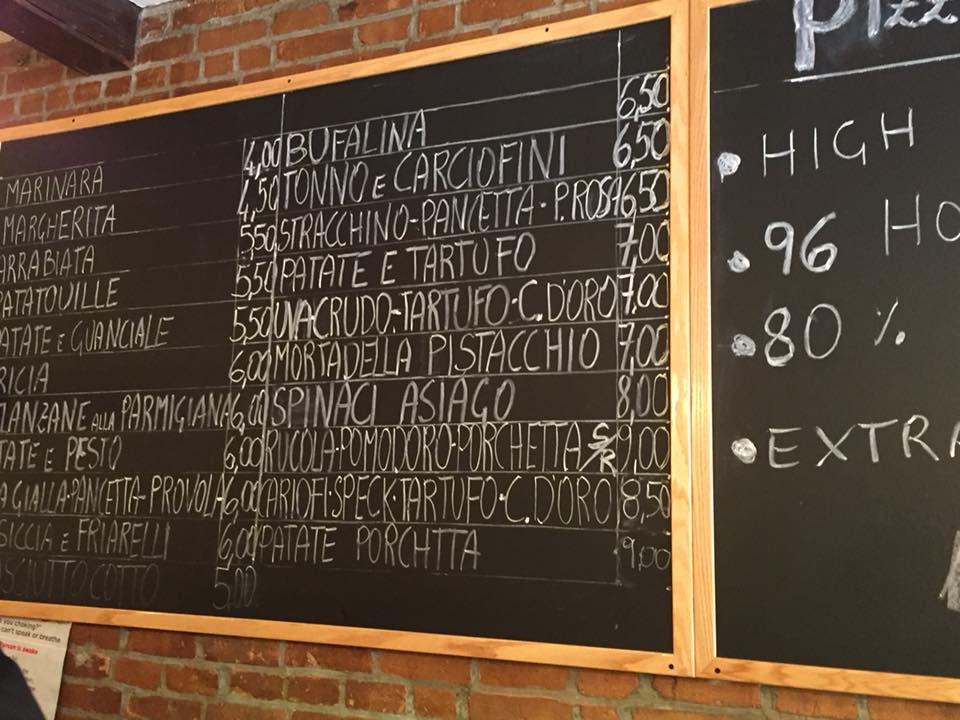 MARINARA 4,00
MARGHERITA 4,50
ARRABIATA 5,50
RATATOUILLE 5,50
ATATE E GUANCIALE 5,50
RICIA 6,00
LANZANE ALLA PARMIGIANA 6,00
TATE E PESTO 6,00
A GIALLA-PANCETTA-PROVOLA 6,00
SICCIA E FRIARELLI 6,00
SCIUTTO COTTO 5,00
BUFALINA 6,50
TONNO E CARCIOFINI 6,50
STRACCHINO-PANCETTA-P.ROSA 6,50
PATATE E TARTUFO 7,00
UVA CRUDO-TARTUFO-C.D'ORO 7,00
MORTADELLA PISTACCHIO 7,00
SPINACI ASIAGO 8,00
RUCOLA-POMODORO-PORCHETTA 9,00
CARIOFI-SPECK-TARTUFO-C.D'ORO 8,50
PATATE PORCHTTA 9,00
PIZZ
HIGH
96 HO
80 %
EXTRA
you choking?"
can't speak or breathe